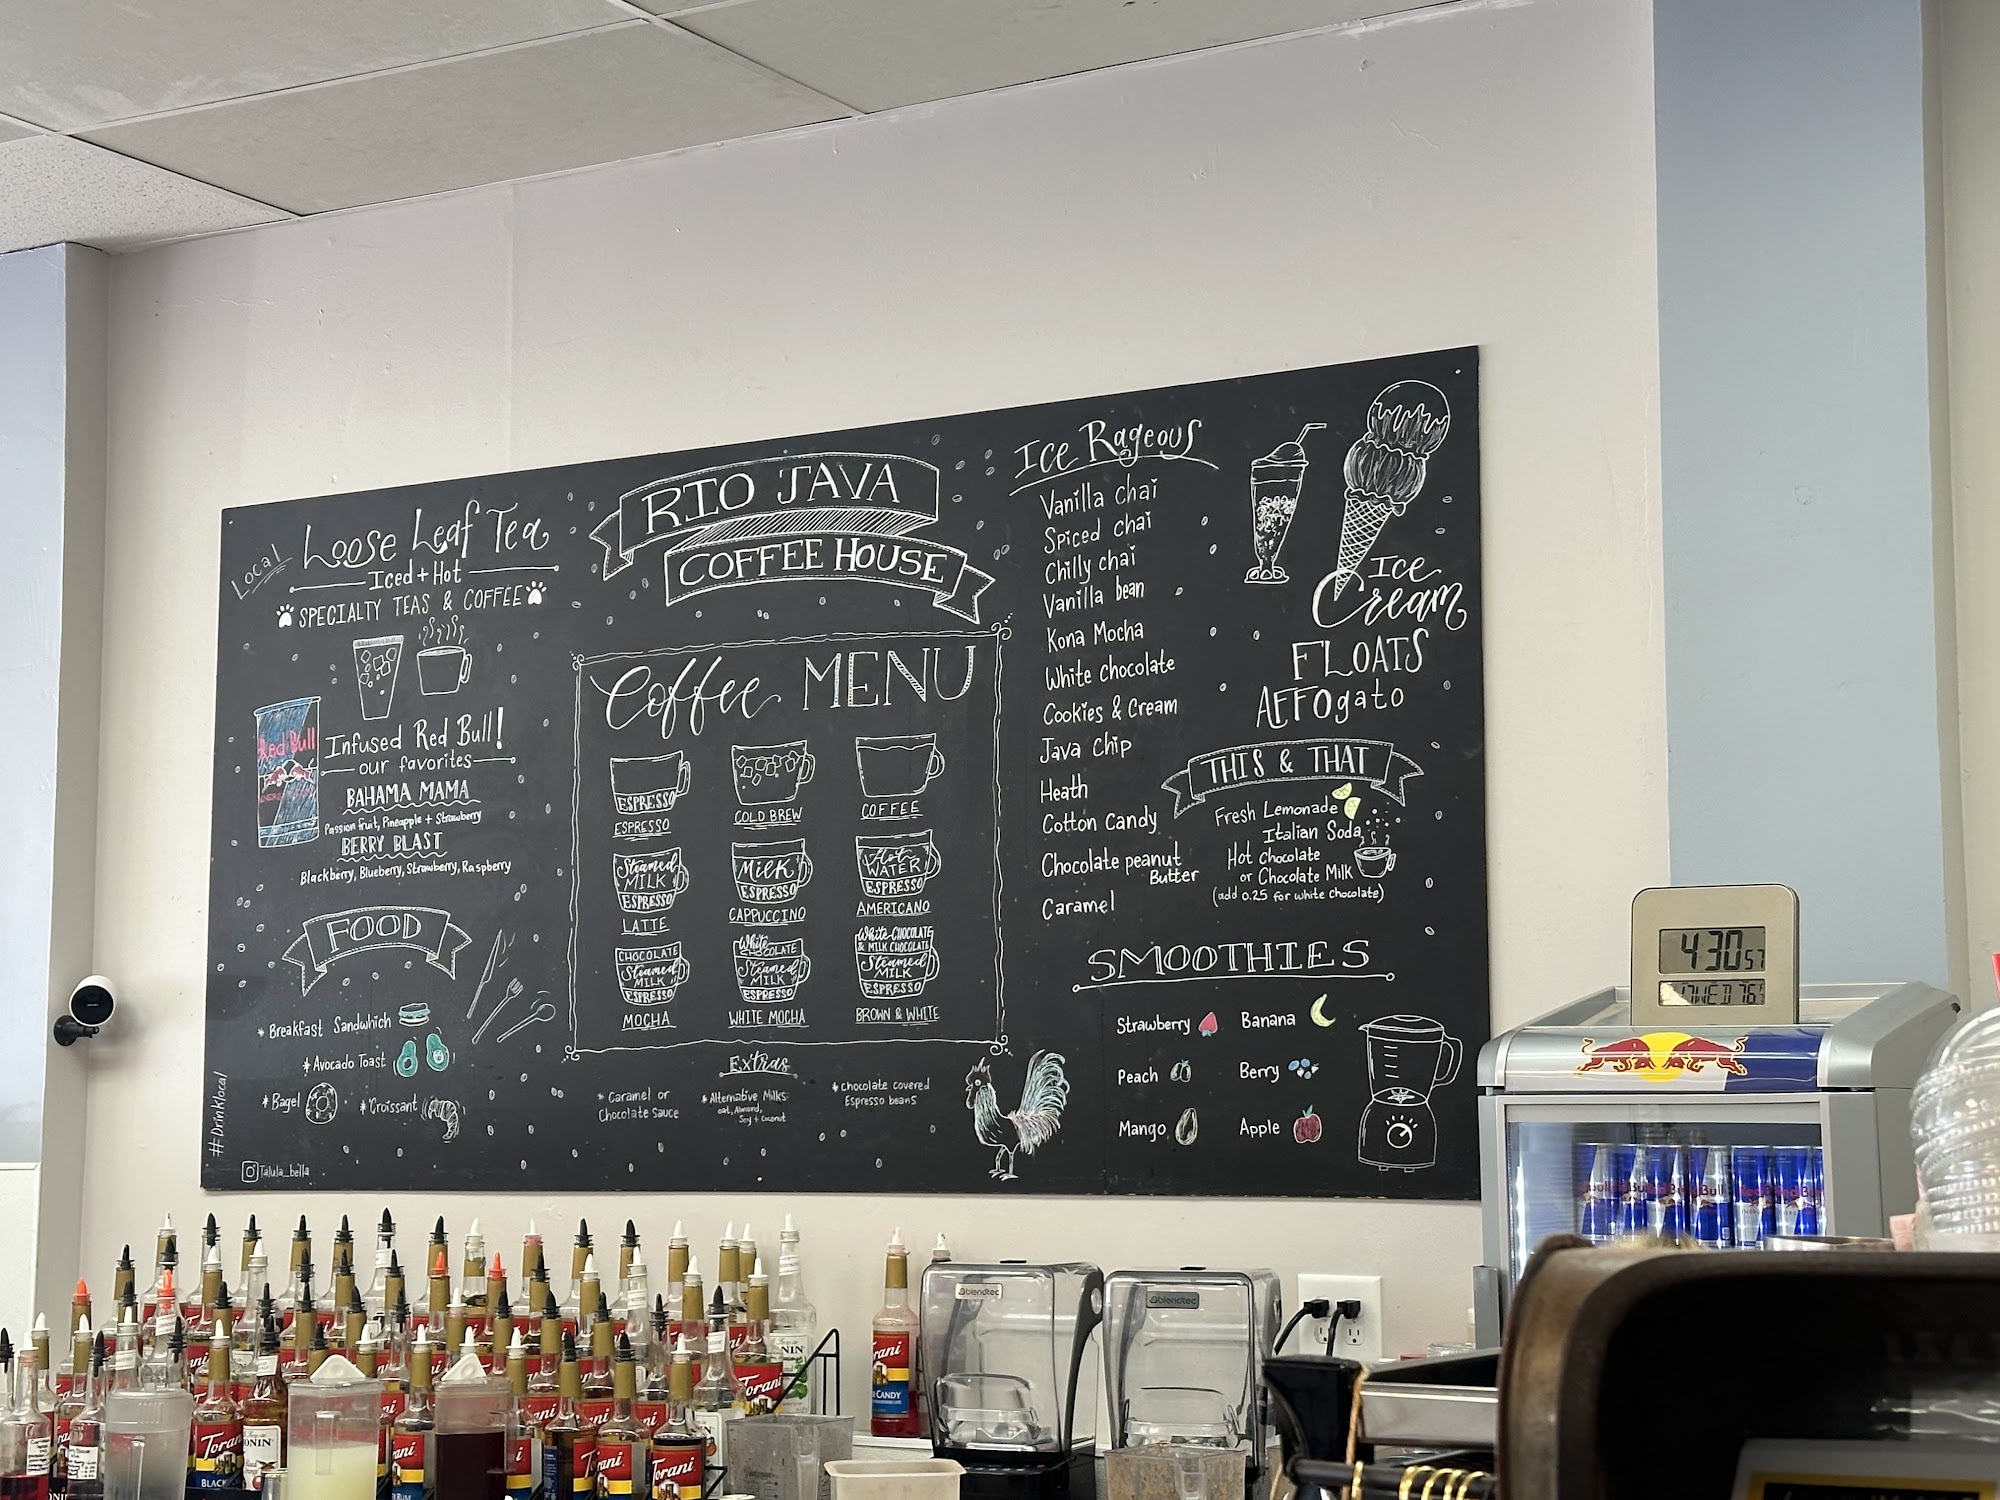 Local
Loose Leaf Tea
Iced + Hot
SPECIALTY TEAS & COFFEE
Red Bull
Infused Red Bull!
our favorites
BAHAMA MAMA
Passion fruit, Pineapple + Strawberry
BERRY BLAST
Blackberry, Blueberry, Strawberry, Raspberry
FOOD
* Breakfast Sandwhich
* Avocado Toast
* Bagel
* Croissant
#Drinklocal
Talula_bella
RIO JAVA
COFFEE HOUSE
Coffee MENU
ESPRESSO
ESPRESSO
COLD BREW
COFFEE
Steamed
MILK
ESPRESSO
LATTE
Milk
ESPRESSO
CAPPUCCINO
Hot
WATER
ESPRESSO
AMERICANO
CHOCOLATE
Steamed
MILK
ESPRESSO
MOCHA
White
CHOCOLATE
Steamed
MILK
ESPRESSO
WHITE MOCHA
White CHOCOLATE
& MILK CHOCOLATE
Steamed
MILK
ESPRESSO
BROWN & WHITE
Extras
* Caramel or
Chocolate Sauce
* Alternative Milks:
oat, Almond,
Soy + Coconut
* Chocolate covered
Espresso beans
Ice Rageous
Vanilla chai
Spiced chai
Chilly chai
Vanilla bean
Kona Mocha
White chocolate
Cookies & Cream
Java Chip
Heath
Cotton Candy
Chocolate peanut
Butter
Caramel
Ice
Cream
FLOATS
AFFOgato
THIS & THAT
Fresh Lemonade
Italian Soda
Hot Chocolate
or Chocolate Milk
(add 0.25 for white chocolate)
SMOOTHIES
Strawberry
Banana
Peach
Berry
Mango
Apple
4:30 57
17 WED 76
blendtec
blendtec
Torani
CANDY
Torani
BLACK
Torani
Torani